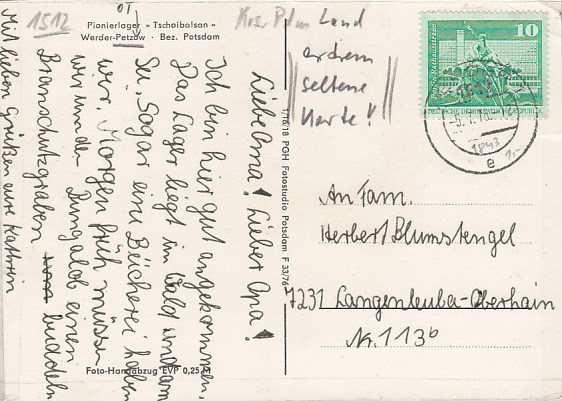 1512
OT
Pionierlager »Tschoibalsan«
Werder-Petzow · Bez. Potsdam
Liebe Oma! Lieber Opa!
Ich bin hier gut angekommen.
Das Lager liegt im Wald und am
See. Sogar eine Bücherei haben
wir. Morgen früh müssen
wir um den Bungalob einen
Brandschutzgraben buddeln
Mit lieben Grüßen eure Kathrin
Foto-Handabzug EVP 0,25 M
1/76/18 PGH Fotostudio Potsdam F 33/76
Krs. Pdm Land
seltene
Karte!
10
DEUTSCHE DEMOKRATISCHE REPUBLIK
1512
e
An Fam.
Herbert Blumstengel
7231 Langenleuba-Oberhain
Nr. 113b